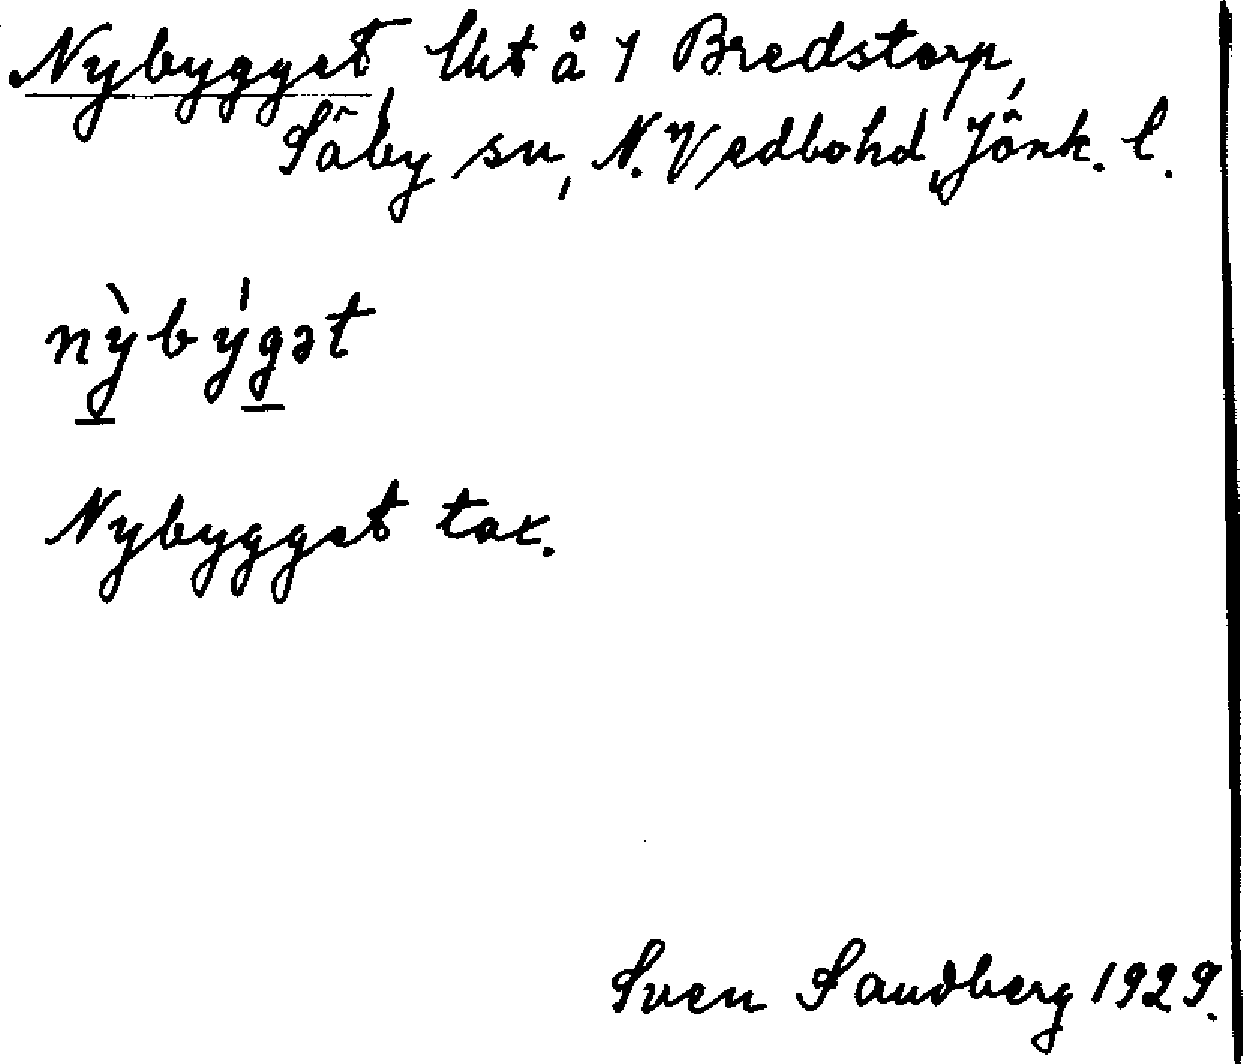 Nybygget, lht å 1 Bredstorp,
Säby sn, N. Vedbohd, Jönk. l.
nỳ̲býg̲ət
Nybygget tax.
Sven Sandberg 1929.